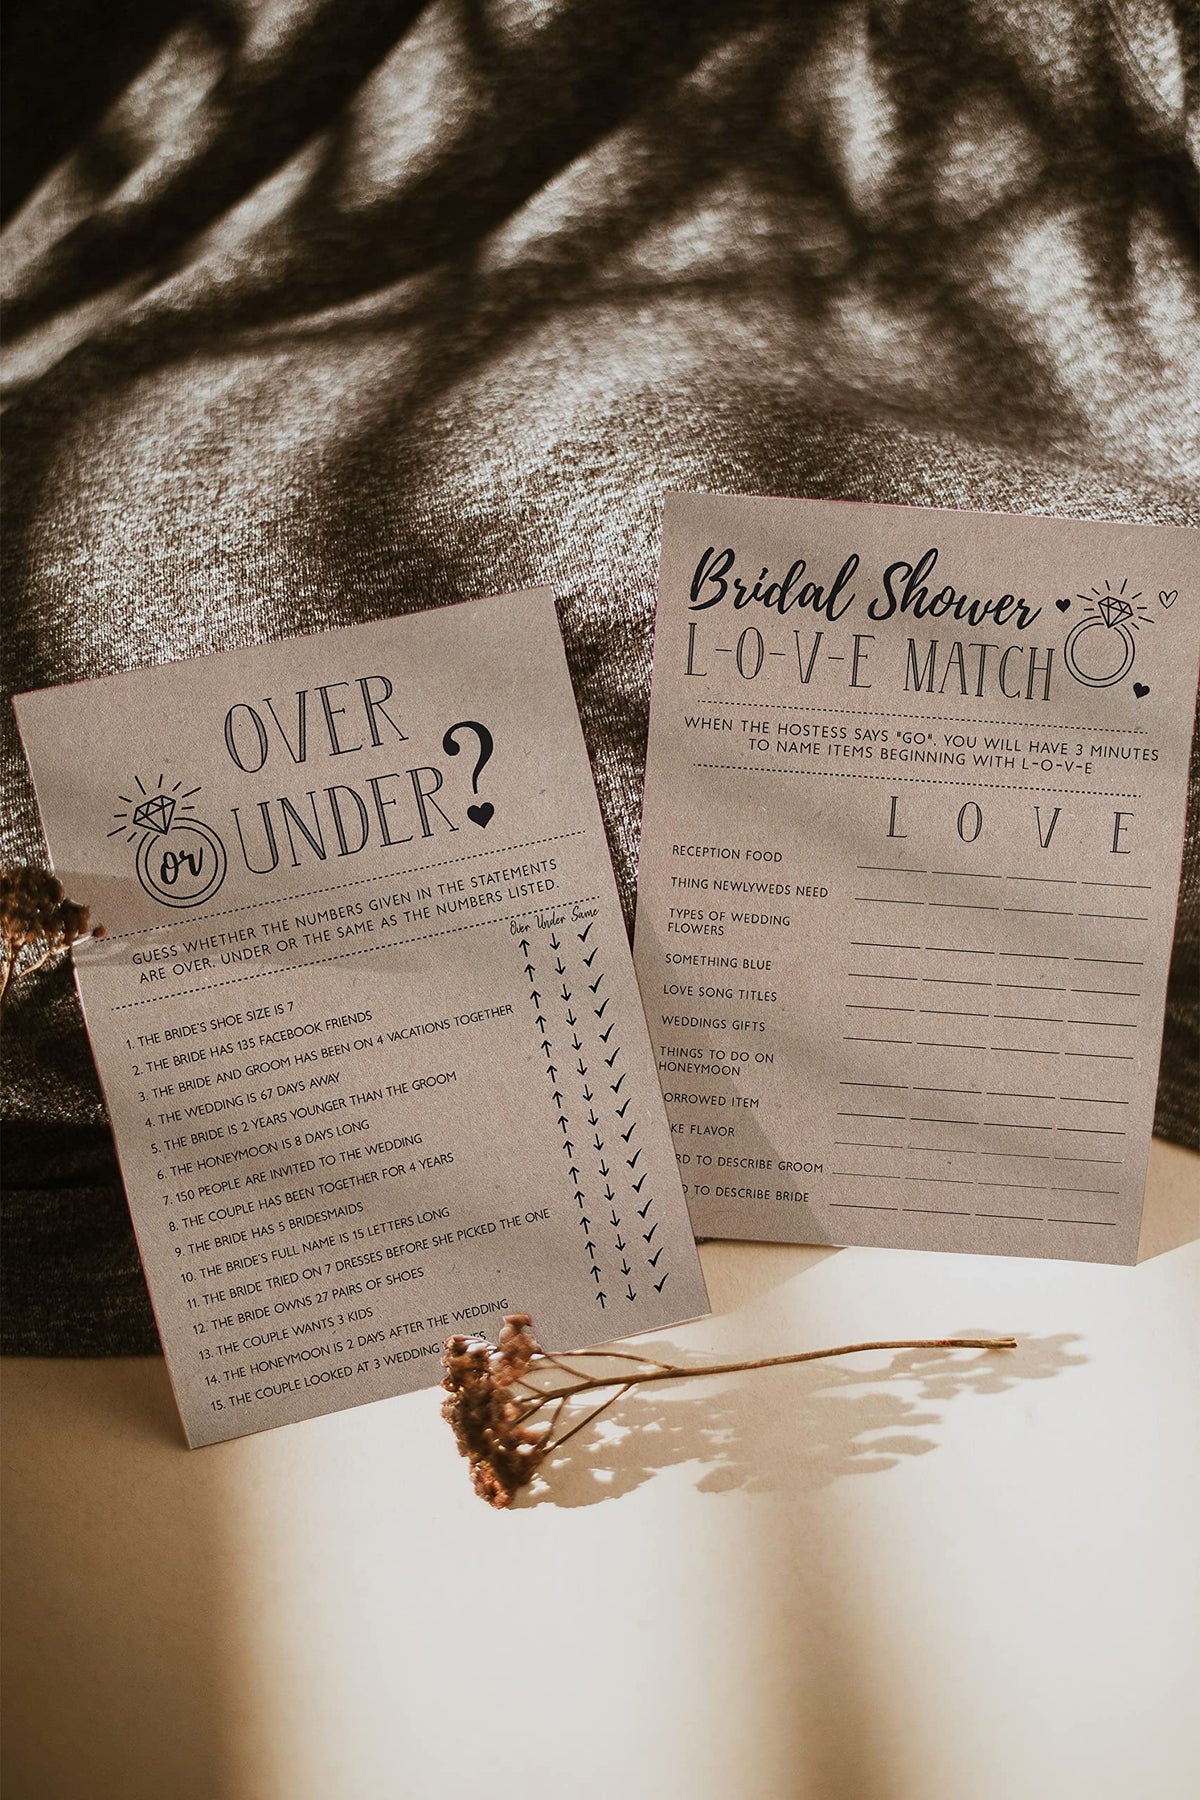 OVER
or UNDER?
GUESS WHETHER THE NUMBERS GIVEN IN THE STATEMENTS
ARE OVER, UNDER OR THE SAME AS THE NUMBERS LISTED.
Over Under Same
1. THE BRIDE'S SHOE SIZE IS 7
2. THE BRIDE HAS 135 FACEBOOK FRIENDS
3. THE BRIDE AND GROOM HAS BEEN ON 4 VACATIONS TOGETHER
4. THE WEDDING IS 67 DAYS AWAY
5. THE BRIDE IS 2 YEARS YOUNGER THAN THE GROOM
6. THE HONEYMOON IS 8 DAYS LONG
7. 150 PEOPLE ARE INVITED TO THE WEDDING
8. THE COUPLE HAS BEEN TOGETHER FOR 4 YEARS
9. THE BRIDE HAS 5 BRIDESMAIDS
10. THE BRIDE'S FULL NAME IS 15 LETTERS LONG
11. THE BRIDE TRIED ON 7 DRESSES BEFORE SHE PICKED THE ONE
12. THE BRIDE OWNS 27 PAIRS OF SHOES
13. THE COUPLE WANTS 3 KIDS
14. THE HONEYMOON IS 2 DAYS AFTER THE WEDDING
15. THE COUPLE LOOKED AT 3 WEDDING
Bridal Shower
L-O-V-E MATCH
WHEN THE HOSTESS SAYS "GO", YOU WILL HAVE 3 MINUTES
TO NAME ITEMS BEGINNING WITH L-O-V-E
L O V E
RECEPTION FOOD
THING NEWLYWEDS NEED
TYPES OF WEDDING
FLOWERS
SOMETHING BLUE
LOVE SONG TITLES
WEDDINGS GIFTS
THINGS TO DO ON
HONEYMOON
ORROWED ITEM
KE FLAVOR
RD TO DESCRIBE GROOM
D TO DESCRIBE BRIDE